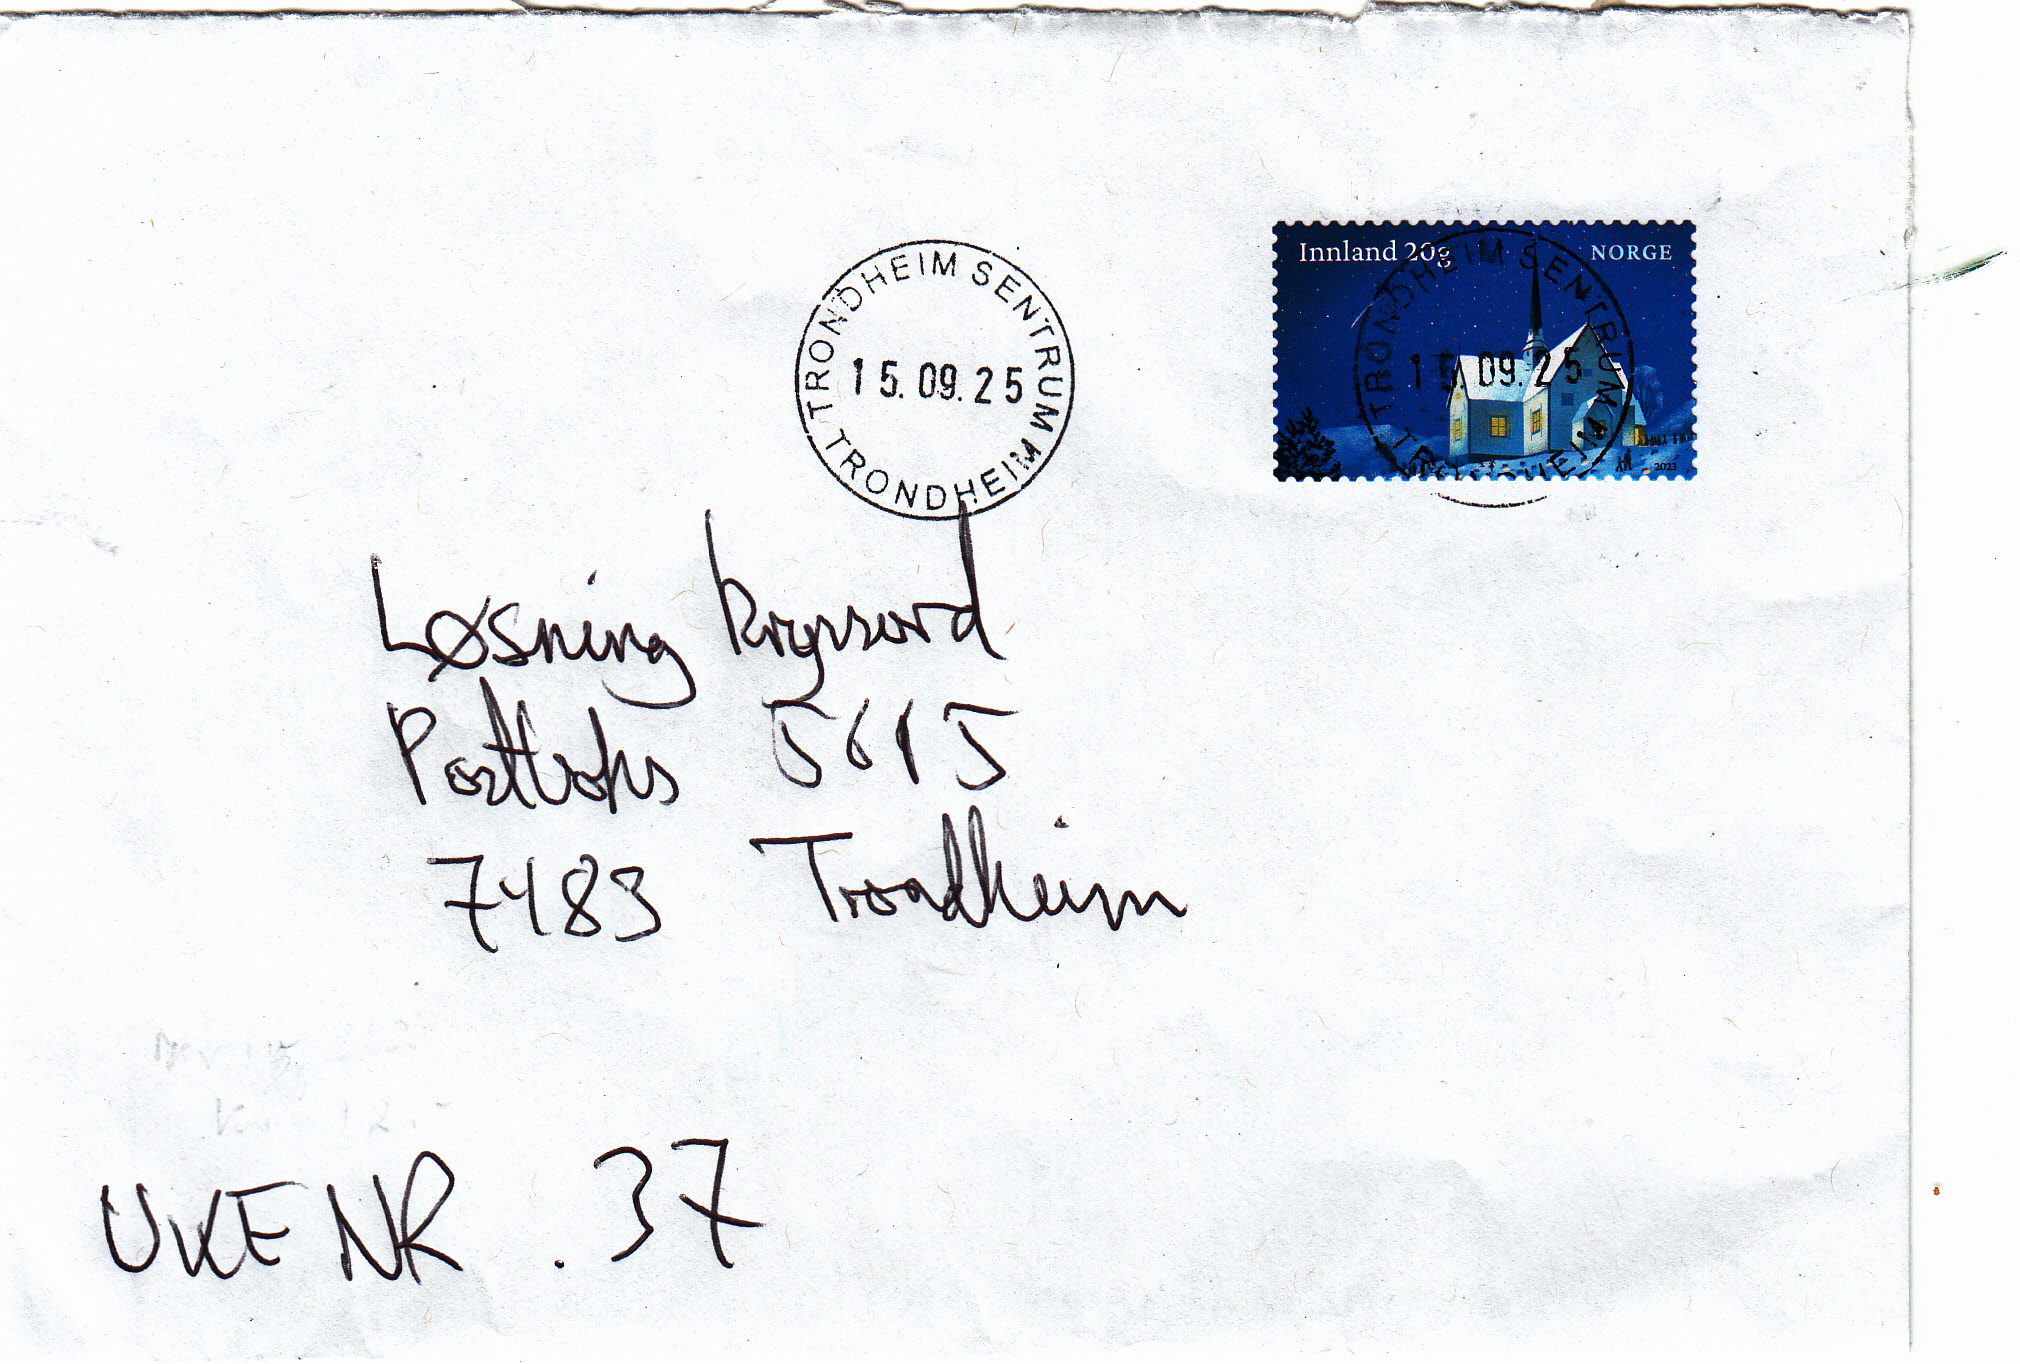 Innland 20g NORGE
TRONDHEIM SENTRUM
15.09.25
TRONDHEIM
TRONDHEIM SENTRUM
15.09.25
TRONDHEIM
2023
Løsning kryssord
Postboks 5615
7483 Trondheim
UKE NR. 37